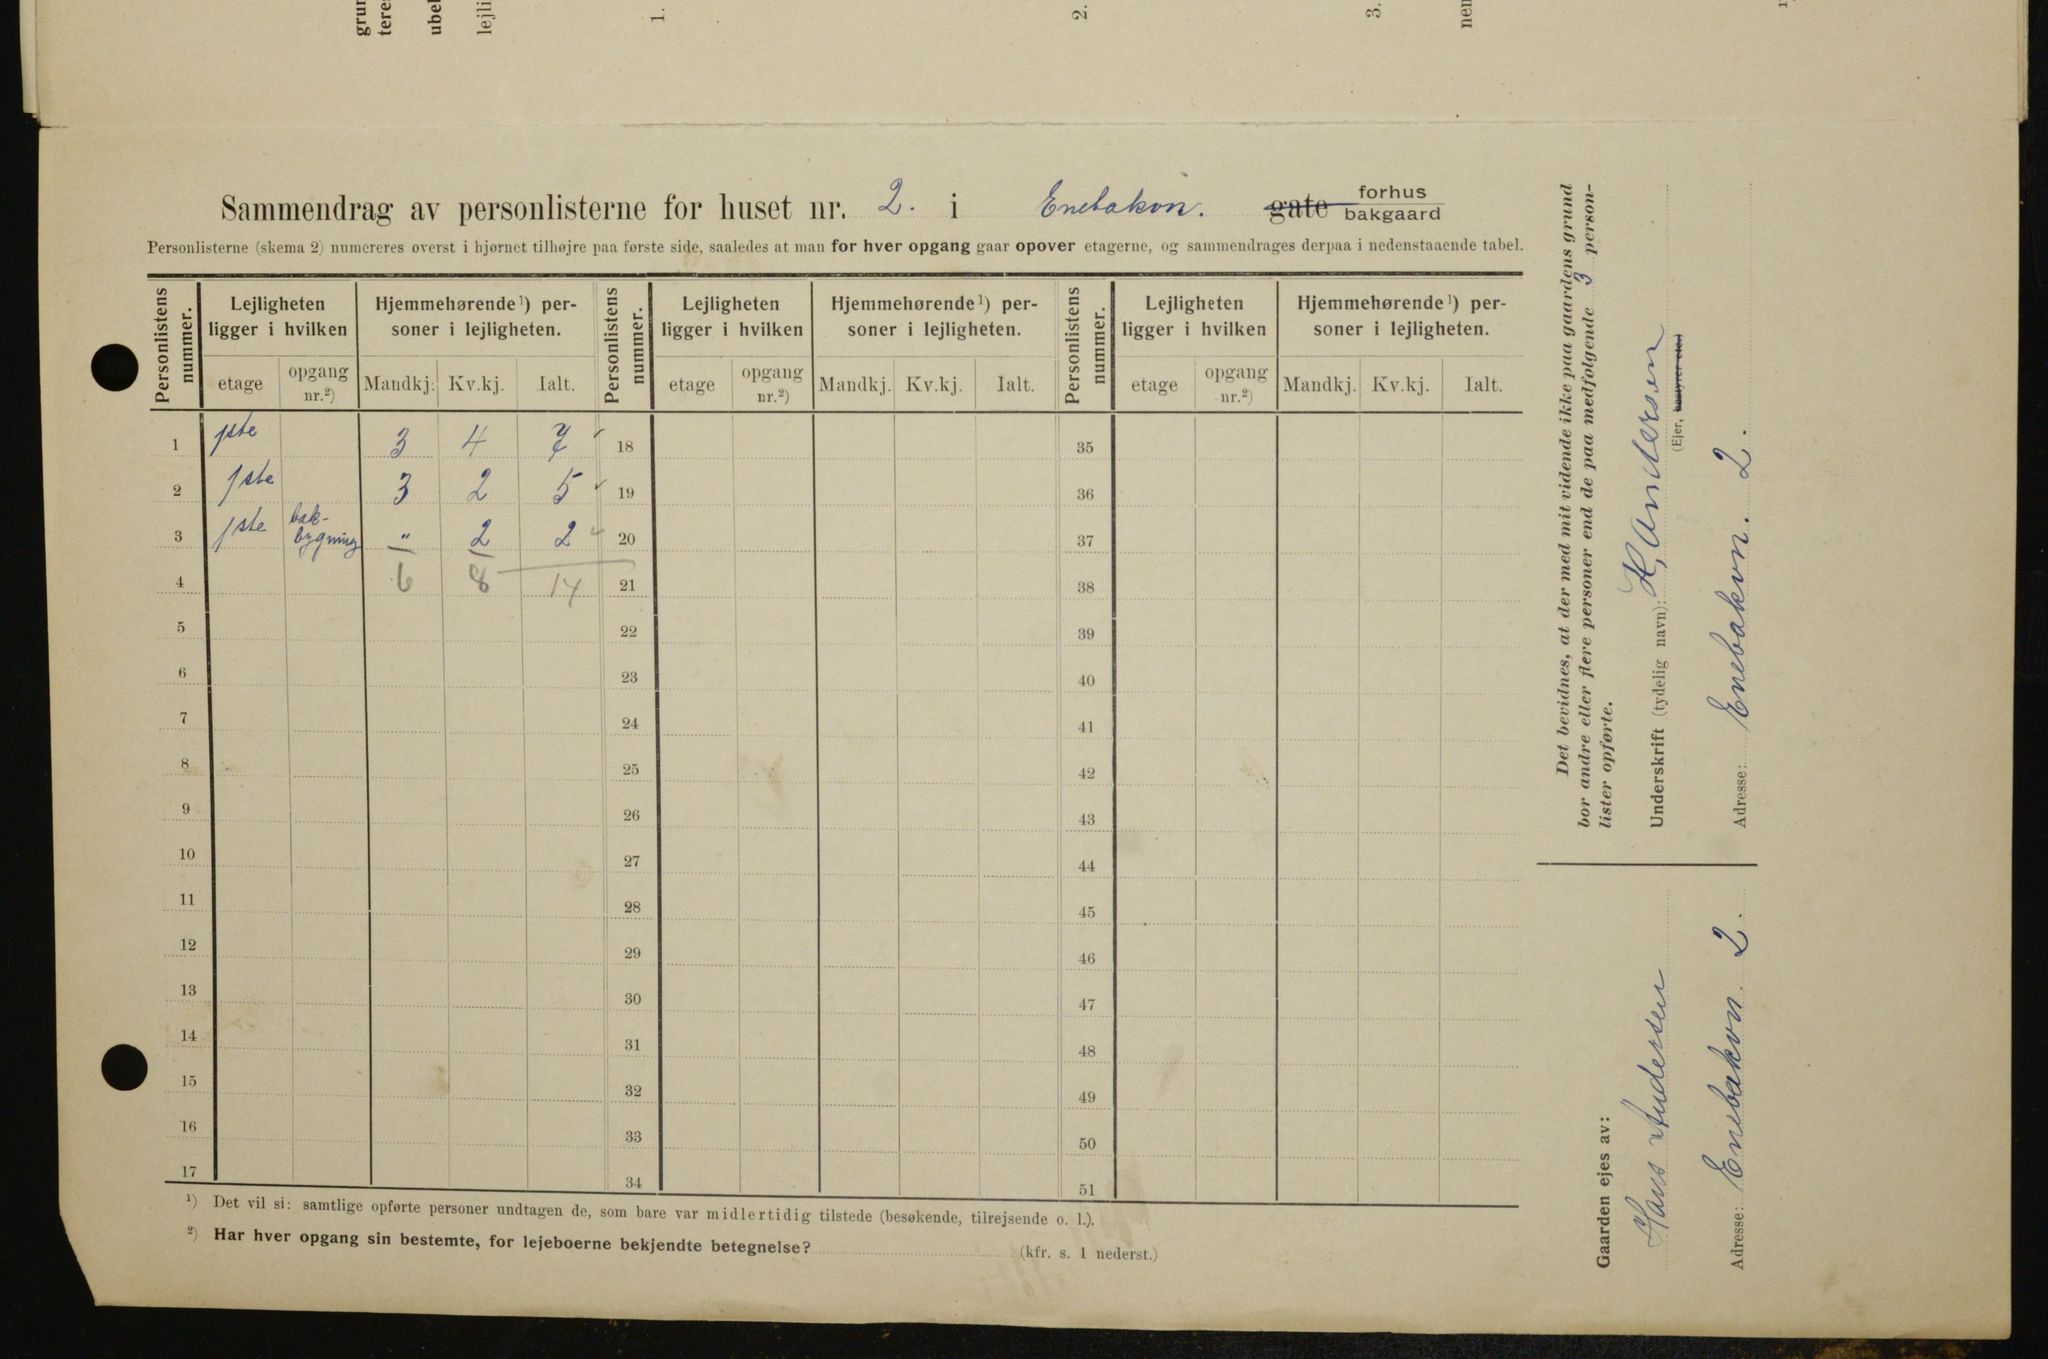 grun
tere
ubel
lejli
1.
2.
3.
nem
Sammendrag av personlisterne for huset nr. 2. i Enebakvn. gate forhus
bakgaard
Personlisterne (skema 2) numereres øverst i hjørnet tilhøjre paa første side, saaledes at man for hver opgang gaar opover etagerne, og sammendrages derpaa i nedenstaaende tabel.
Personlistens nummer. Lejligheten ligger i hvilken Hjemmehørende¹) personer i lejligheten. Personlistens nummer. Lejligheten ligger i hvilken Hjemmehørende¹) personer i lejligheten. Personlistens nummer. Lejligheten ligger i hvilken Hjemmehørende¹) personer i lejligheten.
etage opgang nr.²) Mandkj. Kv.kj. Ialt. etage opgang nr.²) Mandkj. Kv.kj. Ialt. etage opgang nr.²) Mandkj. Kv.kj. Ialt.
1 1ste 3 4 7 18 35
2 1ste 3 2 5 19 36
3 1ste bak-bygning „ 2 2 20 37
4 6 8 14 21 38
5 22 39
6 23 40
7 24 41
8 25 42
9 26 43
10 27 44
11 28 45
12 29 46
13 30 47
14 31 48
15 32 49
16 33 50
17 34 51
¹) Det vil si: samtlige opførte personer undtagen de, som bare var midlertidig tilstede (besøkende, tilrejsende o. l.).
²) Har hver opgang sin bestemte, for lejeboerne bekjendte betegnelse? (kfr. s. 1 nederst.)
Det bevidnes, at der med mit vidende ikke paa gaardens grund
bor andre eller flere personer end de paa medfølgende 3 person-
lister opførte.
Underskrift (tydelig navn): H. Andersen
(Ejer, bestyrer etc.)
Adresse: Enebakvn. 2.
Gaarden ejes av:
Hans Andersen
Adresse: Enebakvn. 2.